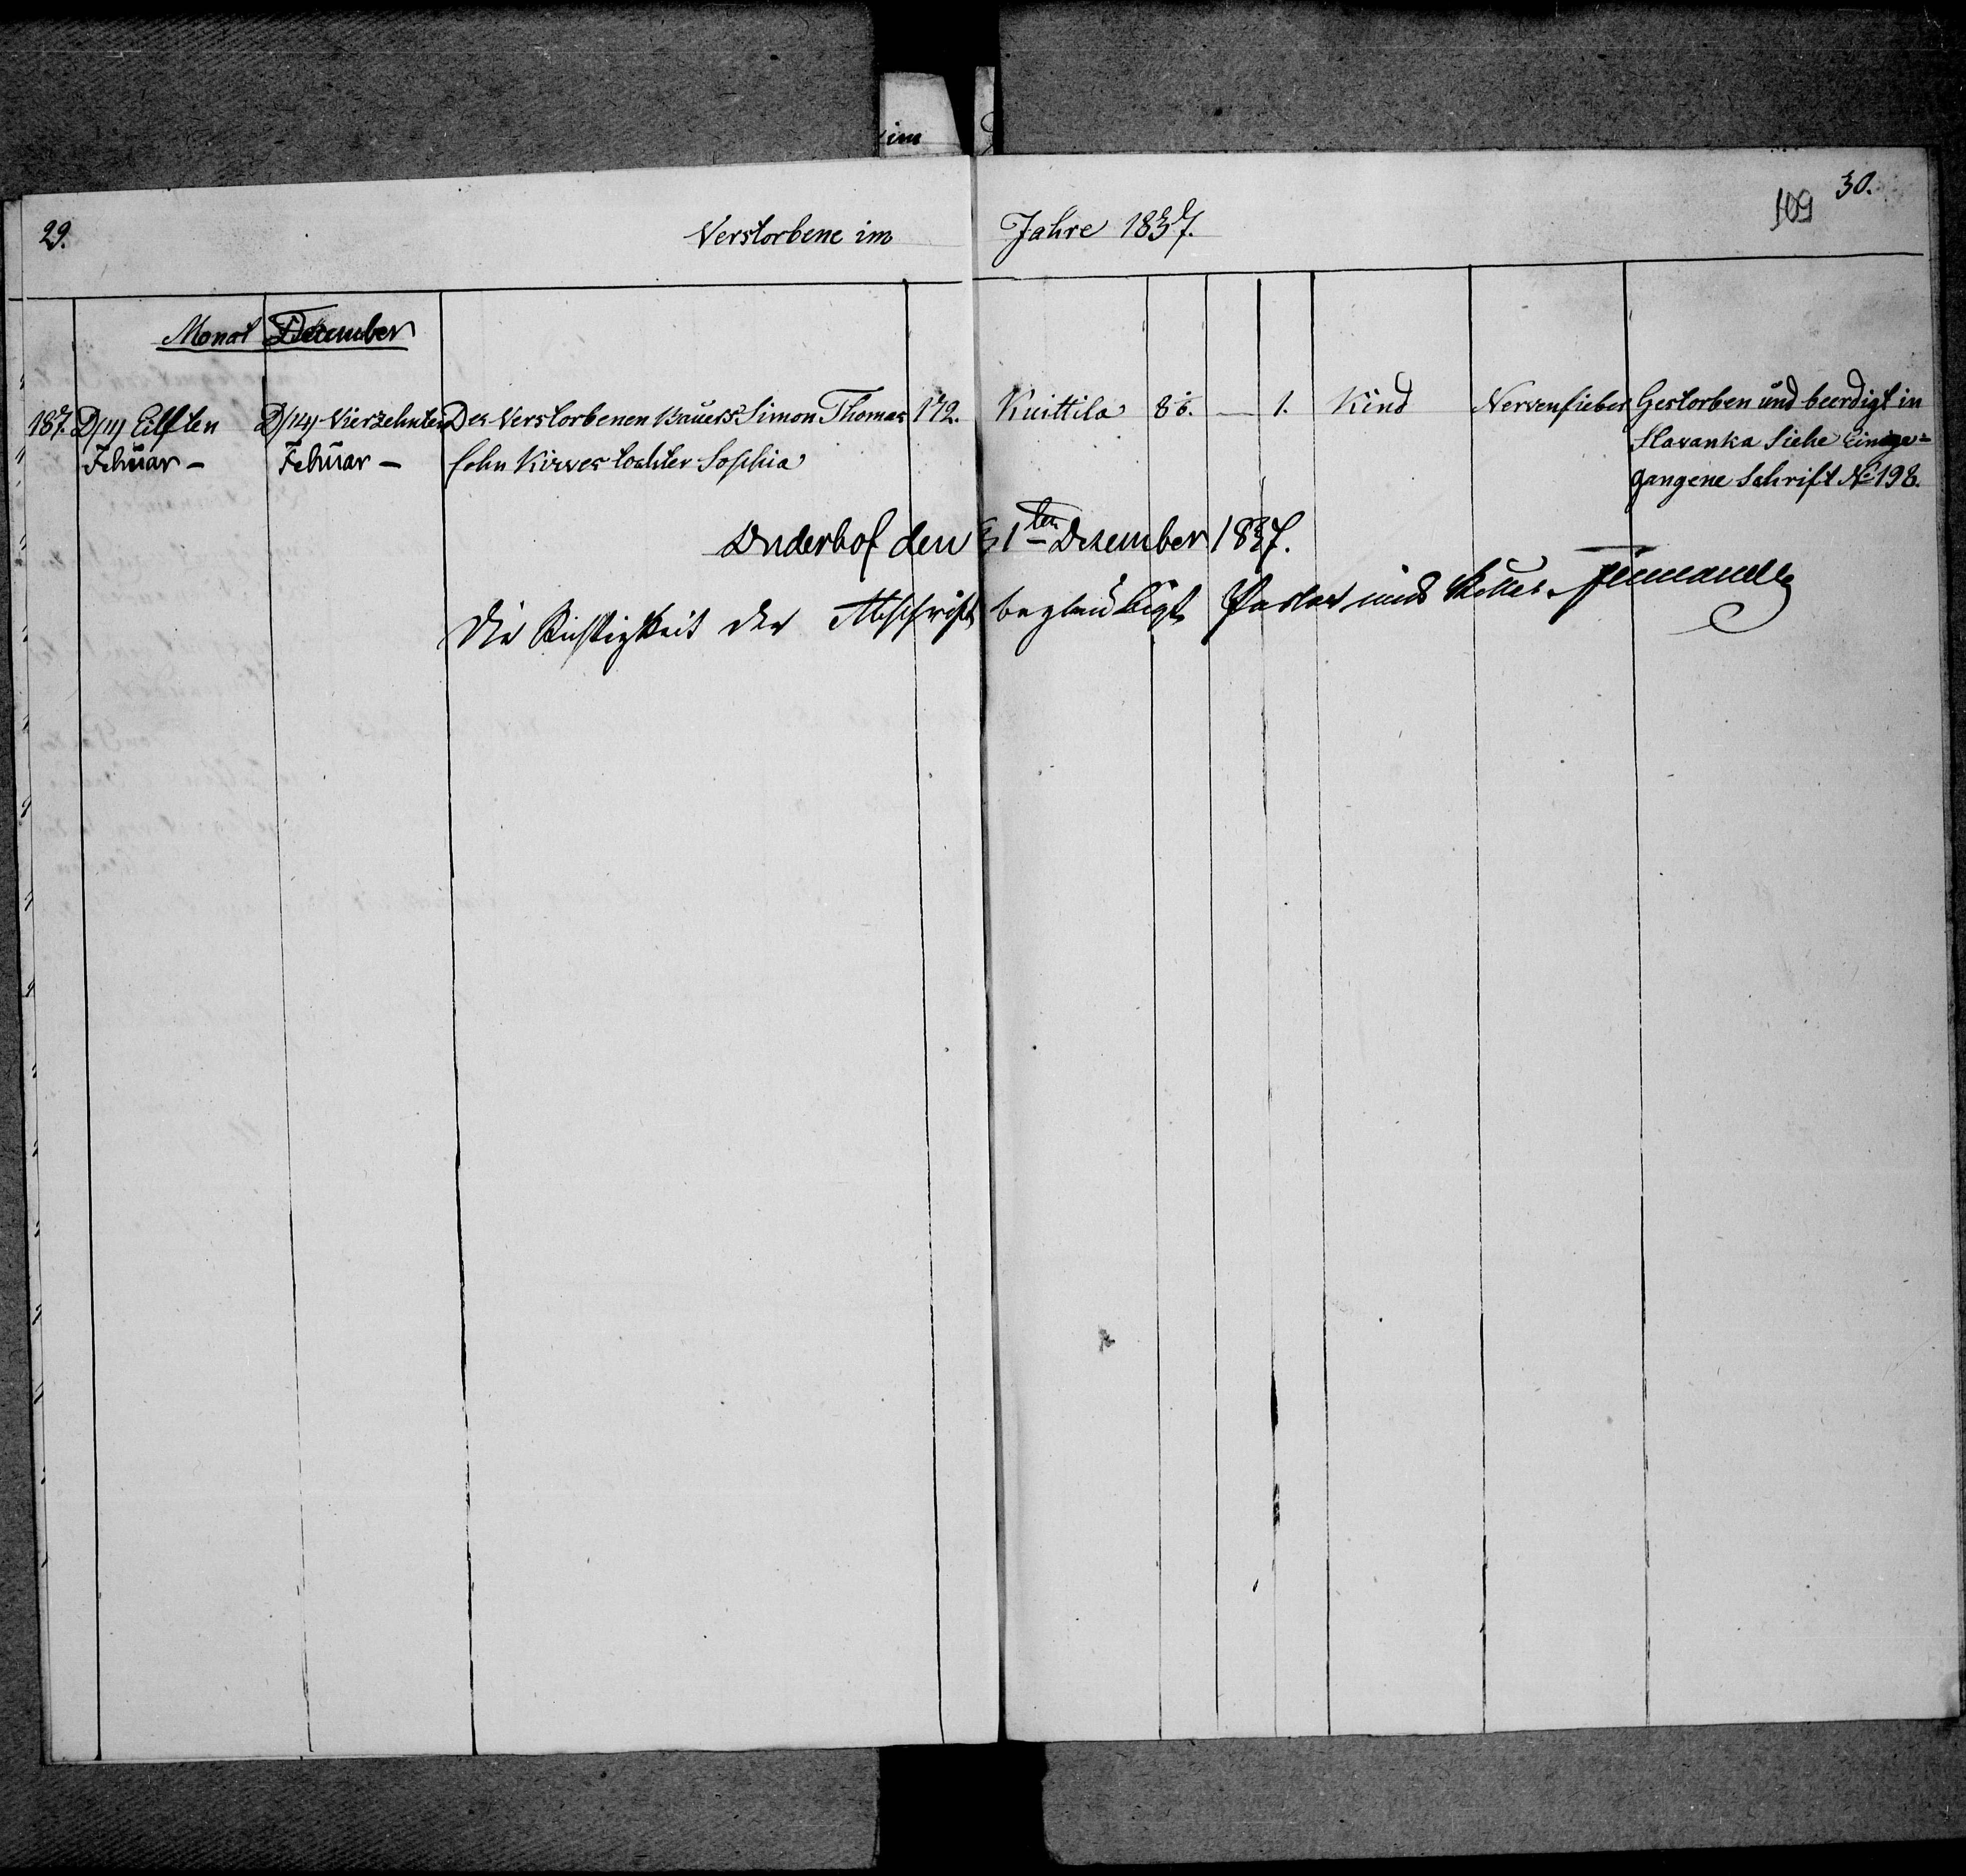 im
29.
Verstorbene im Jahre 1837.
109
30.
Monat December
187. D/11/ Eilften D/14/ Vierzehnten Des Verstorbenen Bauers Simon Thomas 172. Kuittila 86. — 1. Kind Nervenfieber Gestorben und beerdigt in
Februar – Februar – sohn Kirves tochter Sophia Slavanka Siehe Einge=
gangene Schrift No 198.
Duderhof den 31ten Dezember 1837.
Die Richtigkeit der Abschrift beglaubigt Pastor und